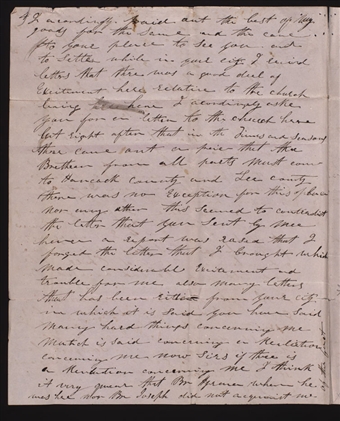 I acordingly paid out the best of my
goods for the same and the came
to your place to see you and
to settle while in your city I rec'd
letters that there was a good deel of
Excitement here relative to the church
being here I acordingly askes
you for an letter to the church here
but right after that in the Times and Seasons
thare came out a pice that the
Brethren from all parts must come
to Hancock County and Lee county
there was no Exception for this place
nor any other this seemed to contredict
the letter that you sent by me
here a report was rased that I
forged the letter that I brought which
made considerable Exitement and
trouble for me also many letters
that has been riten from your city
in which it is said you have said
many hard things concerning me
Mutch is said concerning a Revelation
concerning me now Sirs if there is
a Revelation concerning me I think
it very quear that Br Hyrum when he
was here nor Br Joseph did not acquaint me